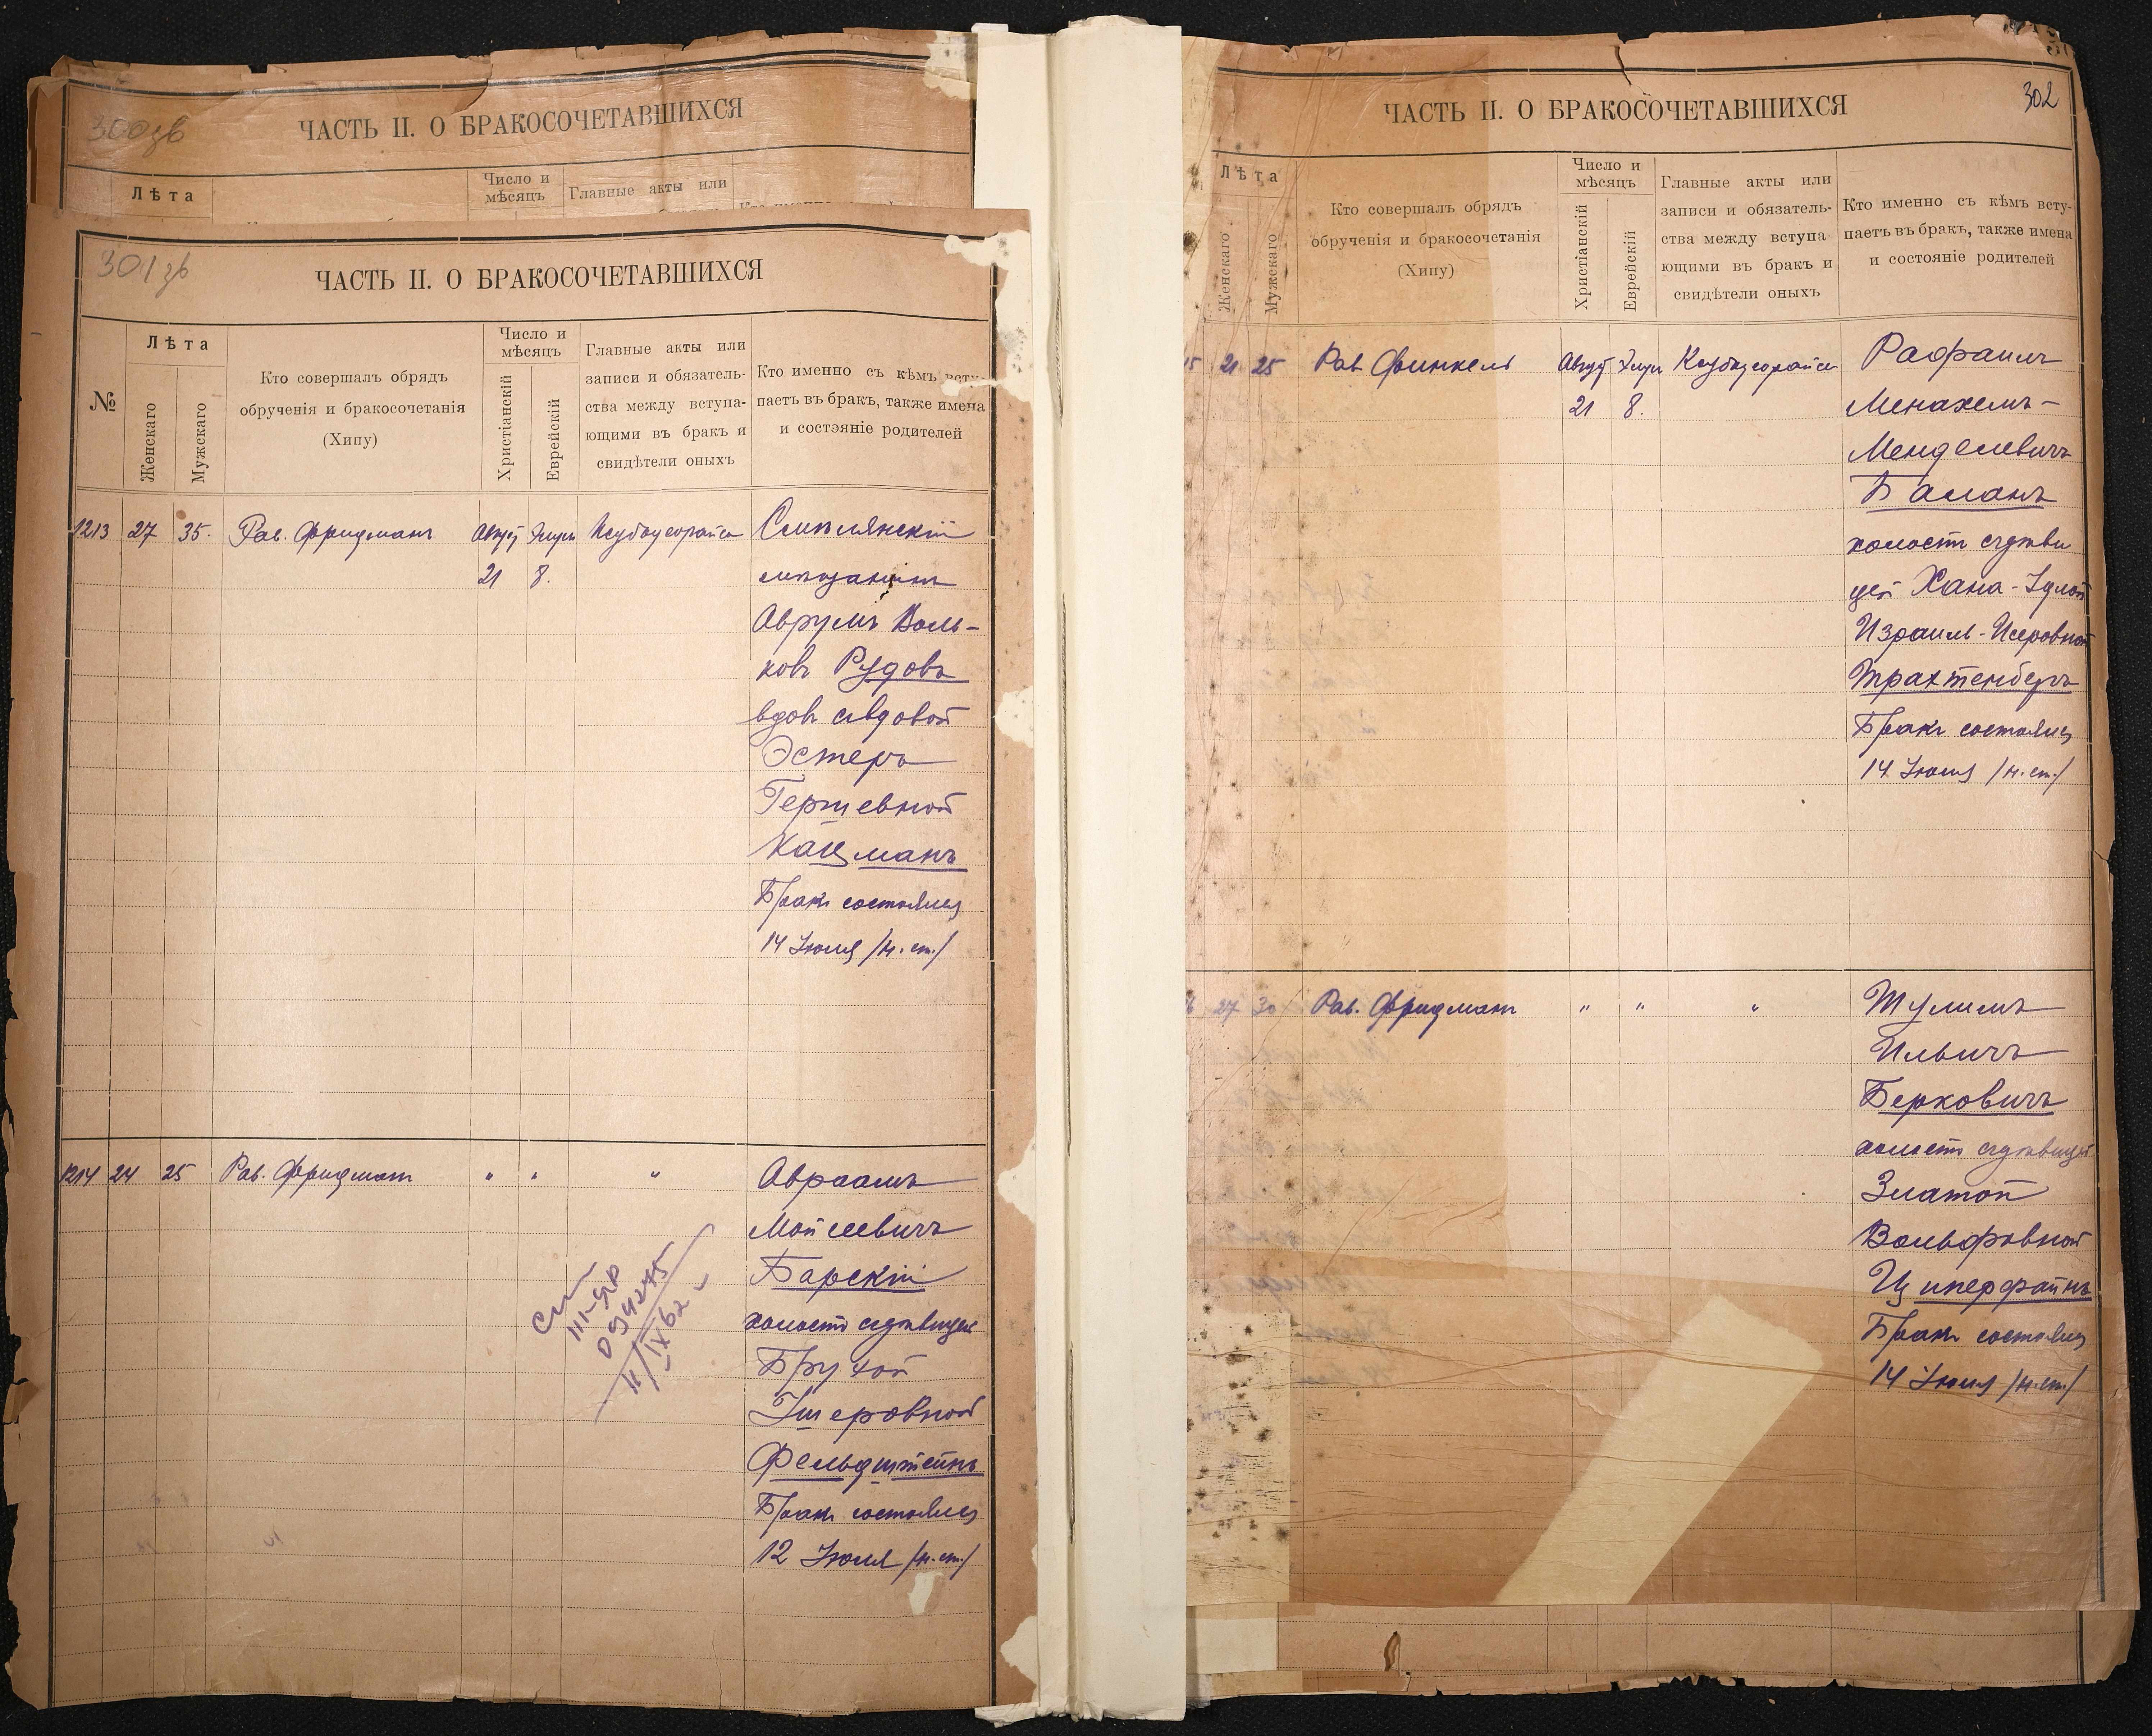 300зв
ЧАСТЬ II. О БРАКОСОЧЕТАВШИХСЯ
Лѣта
Число и
мѣсяцъ
Главные акты или
301 зв
ЧАСТЬ II. О БРАКОСОЧЕТАВШИХСЯ
№
Лѣта
Женскаго
Мужскаго
Кто совершалъ обрядъ
обрученія и бракосочетанія
(Хипу)
Число и
мѣсяцъ
Христіанскій
Еврейскій
Главные акты или
записи и обязатель-
ства между вступа-
ющими въ бракъ и
свидѣтели оныхъ
Кто именно съ кѣмъ всту-
паетъ въ бракъ, также имена
и состояніе родителей
1213 27 35. Рав. Фридманъ Август Элул Ксубоусорайсе
21 8.
Смѣлянскій
мѣщанинъ
Аврумъ Воль-
ковъ Рудовъ
вдов. съ вдовой
Эстеръ
Гершевной
Кацманъ
Бракъ состоялся
14 Іюля /н. ст./
1214 24 25 Рав. Фридманъ " " "
Авраамъ
Мойсеевичъ
Барскій
холостъ съ дѣвицей
Брухой
Ушеровной
Фельдштейнъ
Бракъ состоялся
12 Іюля /н. ст./
III-ЯР
094275
11/IX 62
302
ЧАСТЬ II. О БРАКОСОЧЕТАВШИХСЯ
Лѣта
Женскаго
Мужскаго
Кто совершалъ обрядъ
обрученія и бракосочетанія
(Хипу)
Число и
мѣсяцъ
Христіанскій
Еврейскій
Главные акты или
записи и обязатель-
ства между вступа-
ющими въ бракъ и
свидѣтели оныхъ
Кто именно съ кѣмъ всту-
паетъ въ бракъ, также имена
и состояніе родителей
15 21 25 Рав Финкель Август Элул Ксубоусорайсе
21 8.
Рафаилъ
Менахемъ-
Менделевичъ
Баланъ
холостъ съ дѣви
цей Хана-Удлой
Израиль-Исеровной
Трахтенберъ
Бракъ состоялся
14 Іюля /н. ст./
6 27 30 Рав. Фридманъ " " "
Шулимъ
Ильичъ
Берковичъ
холостъ съ дѣвицей
Златой
Вольфовной
Циперфайнъ
Бракъ состоялся
14 Іюля /н. ст./